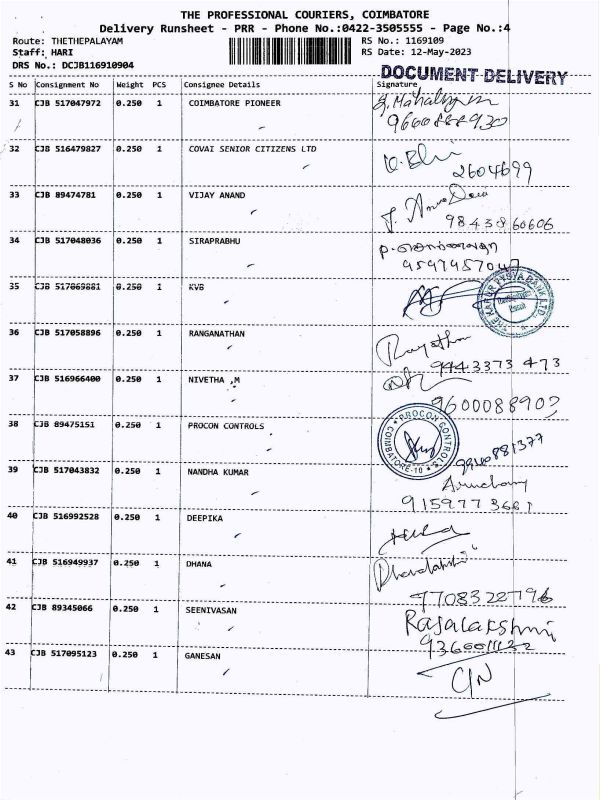 THE PROFESSIONAL COURIERS, COIMBATORE
Delivery Runsheet - PRR - Phone No.:0422-3505555 - Page No.:4
Route: THETHEPALAYAM RS No.: 1169109
Staff: HARI RS Date: 12-May-2023
DRS No.: DCJB116910904
DOCUMENT DELIVERY
S No Consignment No Weight PCS Consignee Details Signature
31 CJB 517047972 0.250 1 COIMBATORE PIONEER
9600888930
32 CJB 516479827 0.250 1 COVAI SENIOR CITIZENS LTD
2604699
33 CJB 89474781 0.250 1 VIJAY ANAND
9843860606
34 CJB 517048036 0.250 1 SIRAPRABHU
9597957047
35 CJB 517069881 0.250 1 KVB
THE KARUR VYSYA BANK LTD
36 CJB 517058896 0.250 1 RANGANATHAN
9443373473
37 CJB 516966400 0.250 1 NIVETHA ,M
9600088903
38 CJB 89475151 0.250 1 PROCON CONTROLS
PROCON CONTROLS
COIMBATORE-10
39 CJB 517043832 0.250 1 NANDHA KUMAR
9159773681
40 CJB 516992528 0.250 1 DEEPIKA
41 CJB 516949937 0.250 1 DHANA
Dhanalakshmi
7708322796
42 CJB 89345066 0.250 1 SEENIVASAN
Rajalakshmi
43 CJB 517095123 0.250 1 GANESAN